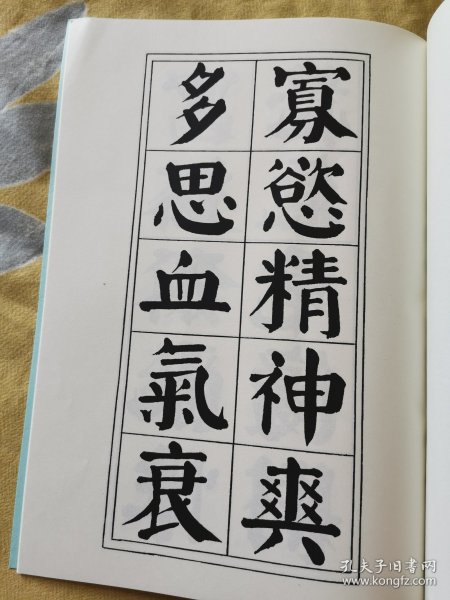 寡慾精神爽
多思血氣衰
孔夫子旧书网
www.kongfz.com